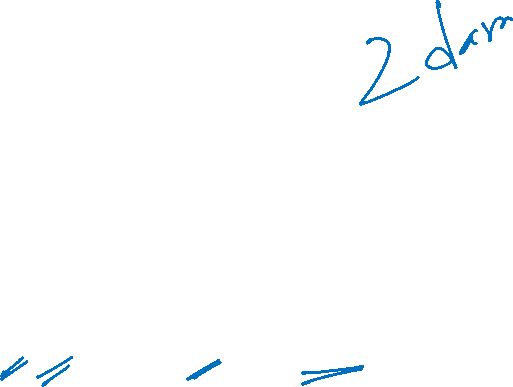 2 dam